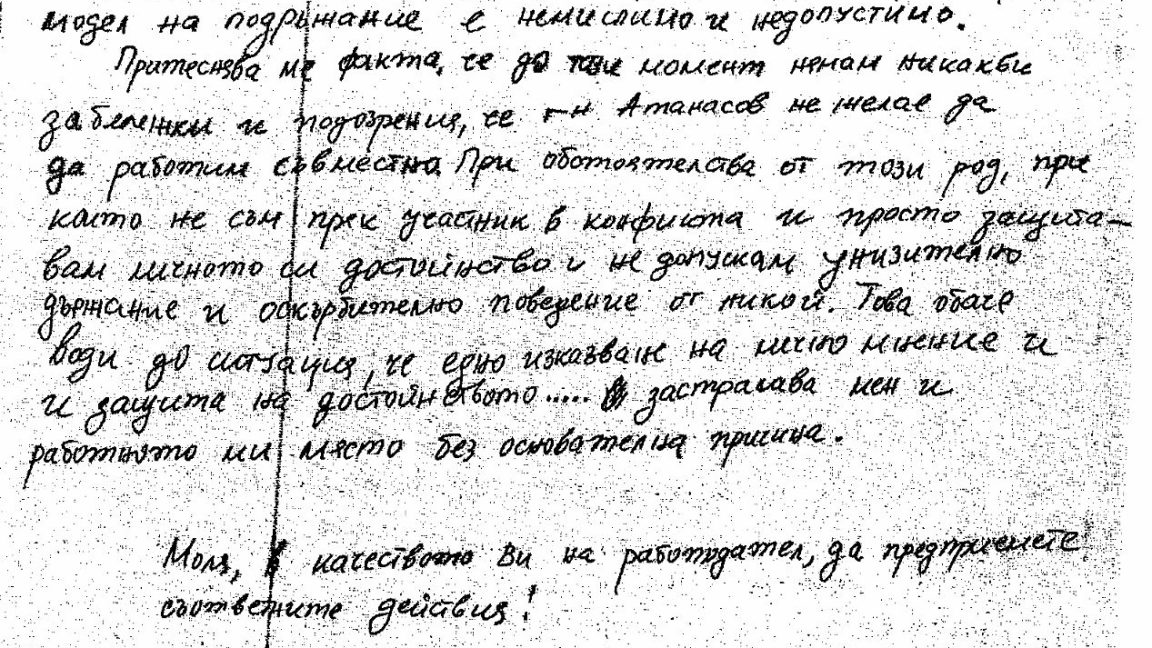 модел на подръжание е немислимо и недопустимо.
Притеснява ме факта, че до този момент немам никакви
забележки и подозрения, че г-н Атанасов не желае да
да работим съвместно. При обстоятелства от този род, при
които не съм пряк участник в конфликта и просто защита-
вам личното си достойнство и не допускам унизително
държание и оскърбително поведение от никой. Това обаче
води до ситуация, че едно изказване на лично мнение и
и защита на достойнството..... застрашава мен и
работното ми място без основателна причина.
Моля, в качеството Ви на работодател, да предприемете
съответните действия!